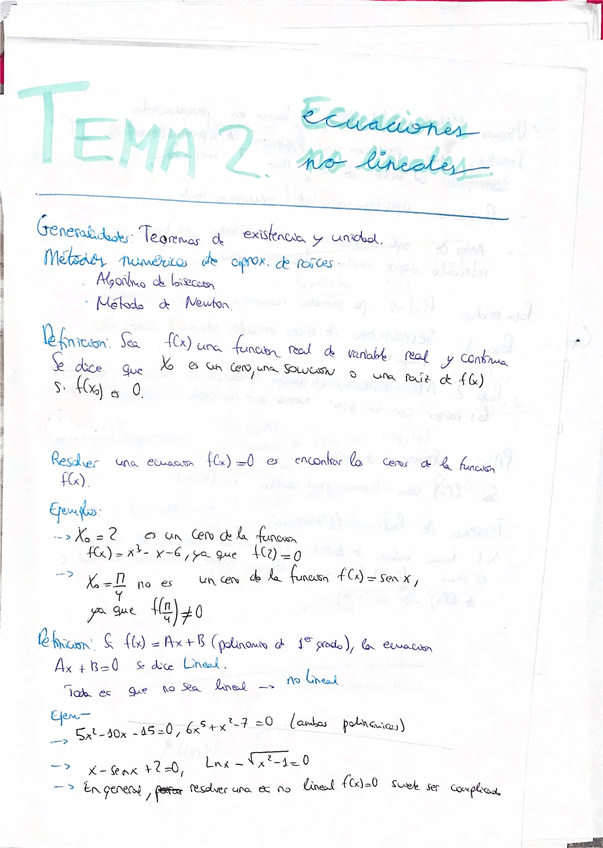 TEMA 2. ecuaciones
no lineales
Generalidades: Teoremas de existencia y unidad.
Métodos numéricos de aprox. de raíces.
. Algoritmo de bisección
- Método de Newton.
Definición: Sea f(x) una función real de variable real y continua
Se dice que x₀ es un cero, una solución o una raíz de f(x)
si f(x₀) es 0.
Resolver una ecuación f(x)=0 es encontrar los ceros de la función
f(x).
Ejemplos:
--> x₀ = 2 es un cero de la función
f(x) = x³ - x - 6, ya que f(2) = 0
--> x₀ = π/4 no es un cero de la función f(x) = sen x,
ya que f(π/4) ≠ 0
Definición: Si f(x) = Ax + B (polinomio de 1er grado), la ecuación
Ax + B = 0 se dice Lineal.
Toda ec que no sea lineal --> no lineal.
Ejem-
--> 5x² - 10x - 15 = 0, 6x⁵ + x² - 7 = 0 (ambas polinómicas)
--> x - senx + 2 = 0, Lnx - √x²-1 = 0
--> En general, resolver una ec no lineal f(x)=0 suele ser complicado